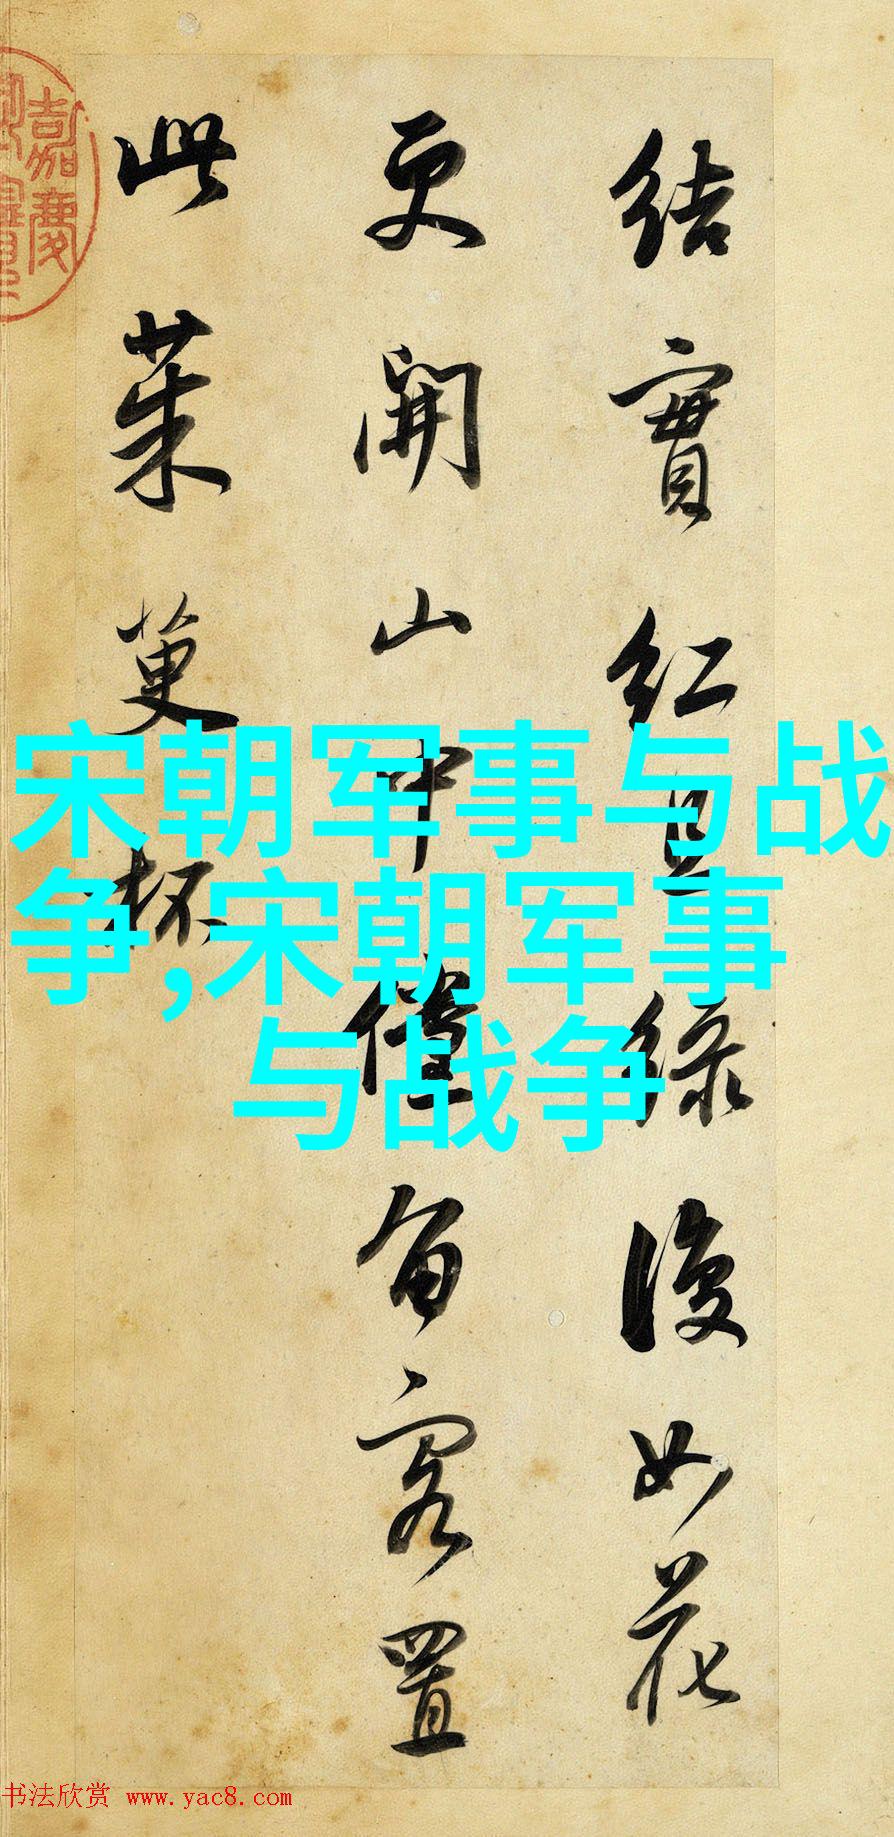 結實紅且綠復如花
更開山中儻留客置
此茱萸杯
嘉慶
宋朝军事与战
争,宋朝军事
与战争
书法欣赏 www.yac8.com